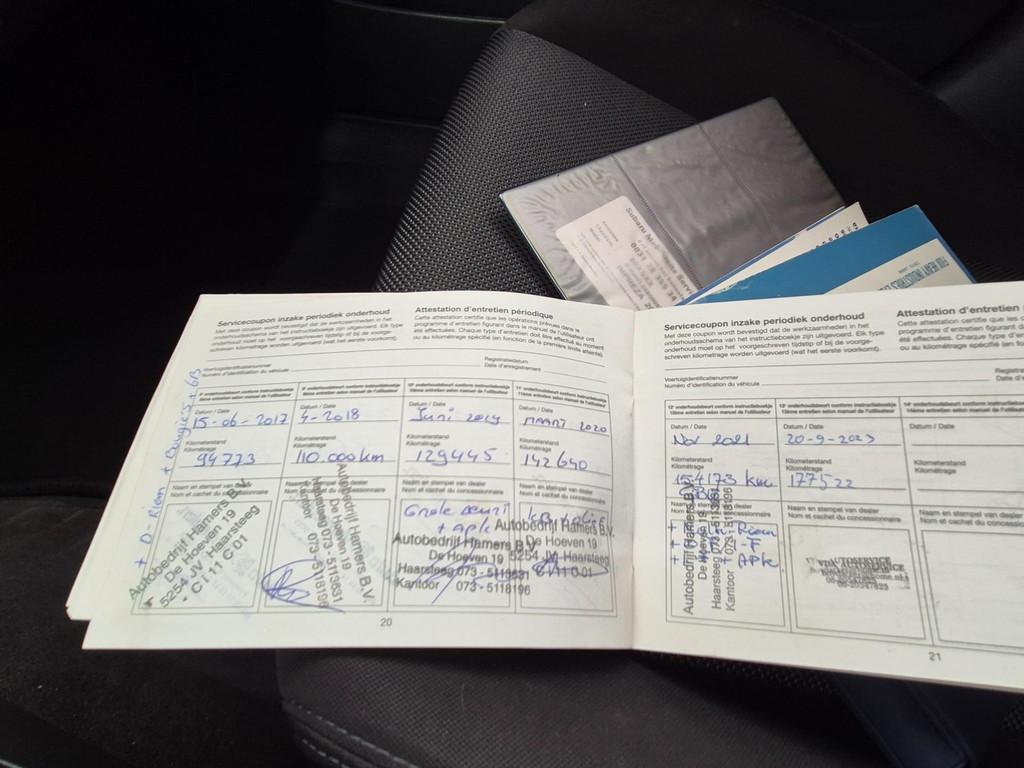 Subaru
Servicecoupon inzake periodiek onderhoud
Met deze coupon wordt bevestigd dat de werkzaamheden in het
onderhoudsschema van het instructieboekje zijn uitgevoerd. Elk type
onderhoud moet op het voorgeschreven tijdstip of bij de voorge-
schreven kilometrage worden uitgevoerd (wat het eerste voorkomt).
Attestation d'entretien périodique
Cette attestation certifie que les opérations prévues dans le
programme d'entretien figurant dans le manuel de l'utilisateur ont
été effectuées. Chaque type d'entretien doit être effectué au moment
ou au kilométrage spécifié (en fonction de la première limite atteinte).
Voertuigidentificatienummer
Numéro d'identification du véhicule
Registratiedatum
Date d'enregistrement
8e onderhoudsbeurt conform instructieboekje
8ème entretien selon manuel de l'utilisateur
Datum / Date
15-06-2017
Kilometerstand
Kilométrage
94773
Naam en stempel van dealer
Nom et cachet du concessionnaire
Autobedrijf Hamers B.V.
De Hoeven 19
5254 JW Haarsteeg
C 01
+ D-Riem + Bougies +
9e onderhoudsbeurt conform instructieboekje
9ème entretien selon manuel de l'utilisateur
Datum / Date
4-2018
Kilometerstand
Kilométrage
110.000km
Naam en stempel van dealer
Nom et cachet du concessionnaire
Autobedrijf Hamers B.V.
De Hoeven 19
Haarsteeg 073-5113631
073-5118196
10e onderhoudsbeurt conform instructieboekje
10ème entretien selon manuel de l'utilisateur
Datum / Date
Juni 2019
Kilometerstand
Kilométrage
129445
Naam en stempel van dealer
Nom et cachet du concessionnaire
Grote beurt
+ APk
Autobedrijf Hamers B.V.
De Hoeven 19
Haarsteeg 073-5113631
Kantoor 073-5118196
11e onderhoudsbeurt conform instructieboekje
11ème entretien selon manuel de l'utilisateur
Datum / Date
MAART 2020
Kilometerstand
Kilométrage
142640
Naam en stempel van dealer
Nom et cachet du concessionnaire
Autobedrijf Hamers B.V.
De Hoeven 19
5254 JW Haarsteeg
20
Servicecoupon inzake periodiek onderhoud
Met deze coupon wordt bevestigd dat de werkzaamheden in het
onderhoudsschema van het instructieboekje zijn uitgevoerd. Elk type
onderhoud moet op het voorgeschreven tijdstip of bij de voorge-
schreven kilometrage worden uitgevoerd (wat het eerste voorkomt).
Attestation d'entretien
Cette attestation certifie que les
programme d'entretien figurant d
été effectuées. Chaque type d'ent
ou au kilométrage spécifié (en fonction
Voertuigidentificatienummer
Numéro d'identification du véhicule
12e onderhoudsbeurt conform instructieboekje
12ème entretien selon manuel de l'utilisateur
Datum / Date
Nov 2021
Kilometerstand
Kilométrage
154173 km
Naam en stempel van dealer
+ APk
Autobedrijf Hamers B.V.
De Hoeven 19
Haarsteeg 073-5113631
Kantoor 073-5118196
13e onderhoudsbeurt conform instructieboekje
13ème entretien selon manuel de l'utilisateur
Datum / Date
20-9-2023
Kilometerstand
Kilométrage
177522
Naam en stempel van dealer
Nom et cachet du concessionnaire
Datum / Date
Kilometerstand
Kilométrage
Naam en stempel van dealer
Nom et cachet du concession
21